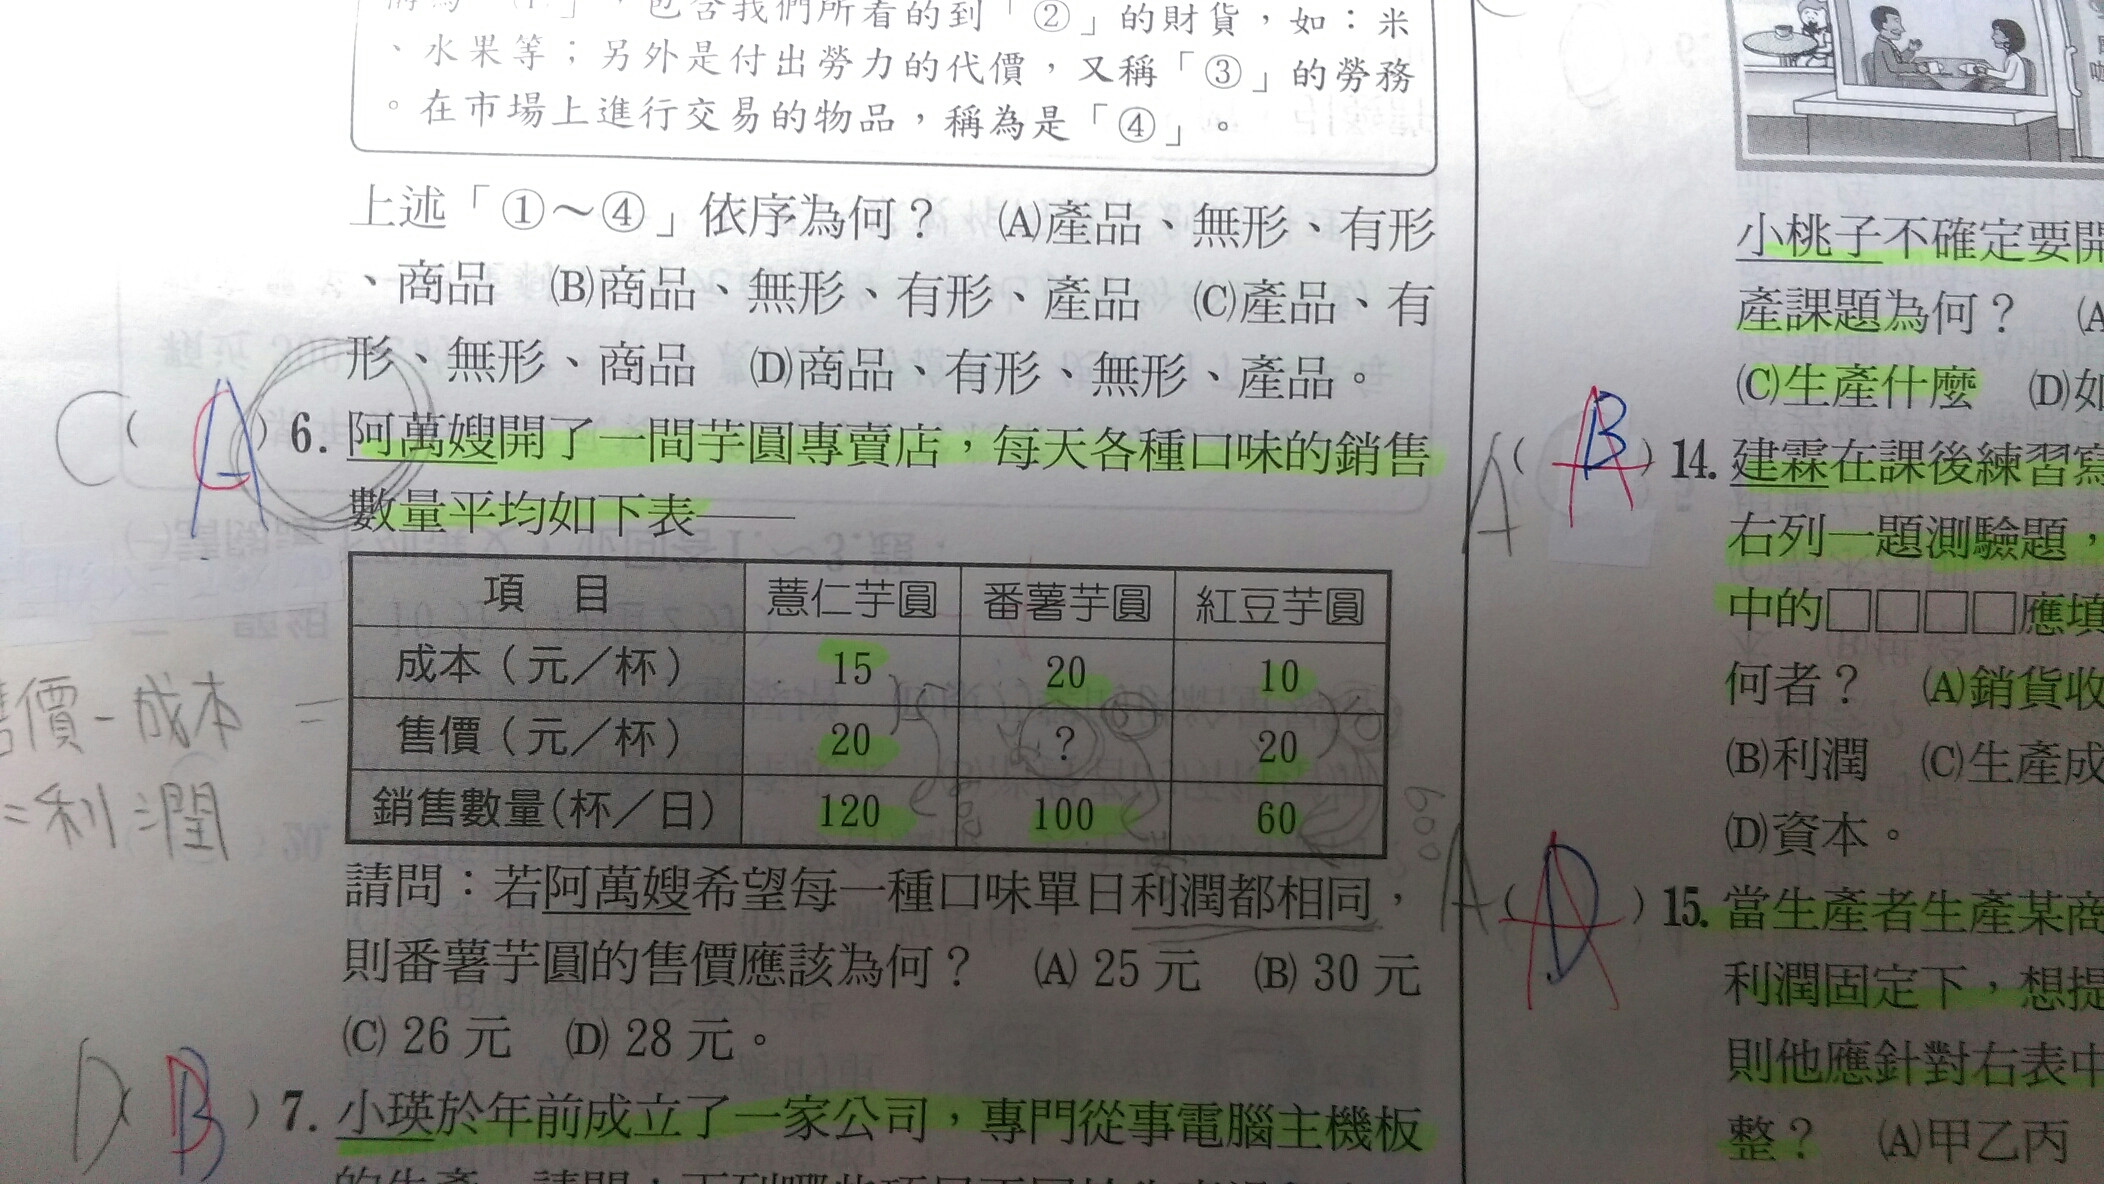 包含我們所看的到「②」的財貨，如：米
、水果等；另外是付出勞力的代價，又稱「③」的勞務
。在市場上進行交易的物品，稱為是「④」。
上述「①～④」依序為何？ (A)產品、無形、有形
、商品 (B)商品、無形、有形、產品 (C)產品、有
形、無形、商品 (D)商品、有形、無形、產品。
C( A )6. 阿萬嫂開了一間芋圓專賣店，每天各種口味的銷售
數量平均如下表——
項 目 薏仁芋圓 番薯芋圓 紅豆芋圓
成本（元／杯） 15 20 10
售價（元／杯） 20 ? 20
銷售數量(杯／日) 120 100 60
售價-成本 =
=利潤
600
請問：若阿萬嫂希望每一種口味單日利潤都相同，
則番薯芋圓的售價應該為何？ (A) 25 元 (B) 30 元
(C) 26 元 (D) 28 元。
D( B )7. 小瑛於年前成立了一家公司，專門從事電腦主機板
小桃子不確定要開
產課題為何？ (A
(C)生產什麼 (D)如
A( B )14. 建霖在課後練習寫
右列一題測驗題，
中的□□□□應填
何者？ (A)銷貨收
(B)利潤 (C)生產成
(D)資本。
A( D )15. 當生產者生產某商
利潤固定下，想提
則他應針對右表中
整？ (A)甲乙丙